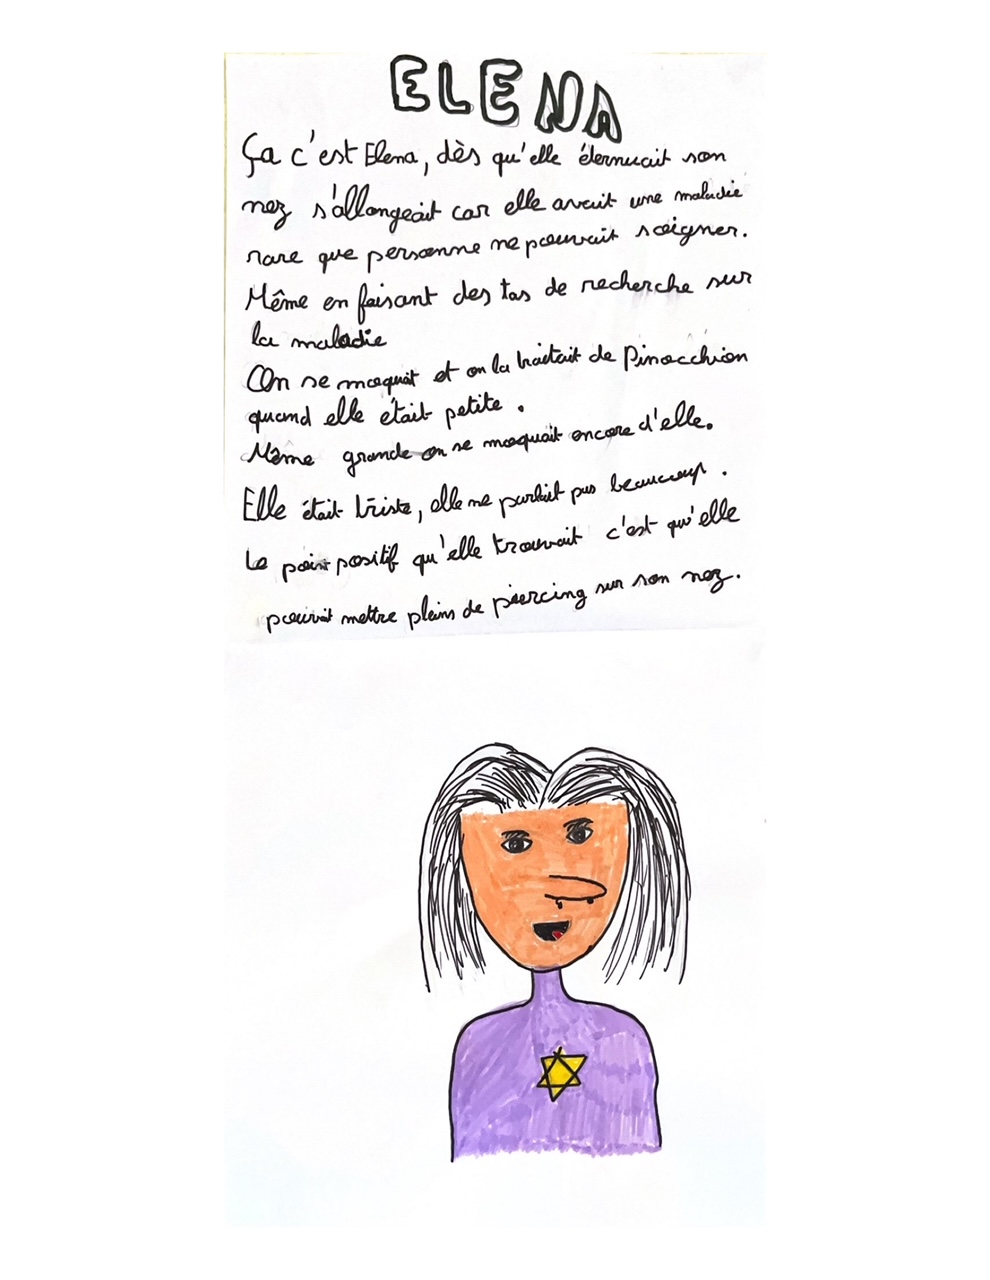 ELENA
Ça c'est Elena, dès qu'elle éternuait son
nez s'allongeait car elle avait une maladie
rare que personne ne pouvait soigner.
Même en faisant des tas de recherche sur
la maladie
On se moquait et on la traitait de Pinocchion
quand elle était petite.
Même grande on se moquait encore d'elle.
Elle était triste, elle ne parlait pas beaucoup.
Le point positif qu'elle trouvait c'est qu'elle
pouvait mettre pleins de piercing sur son nez.